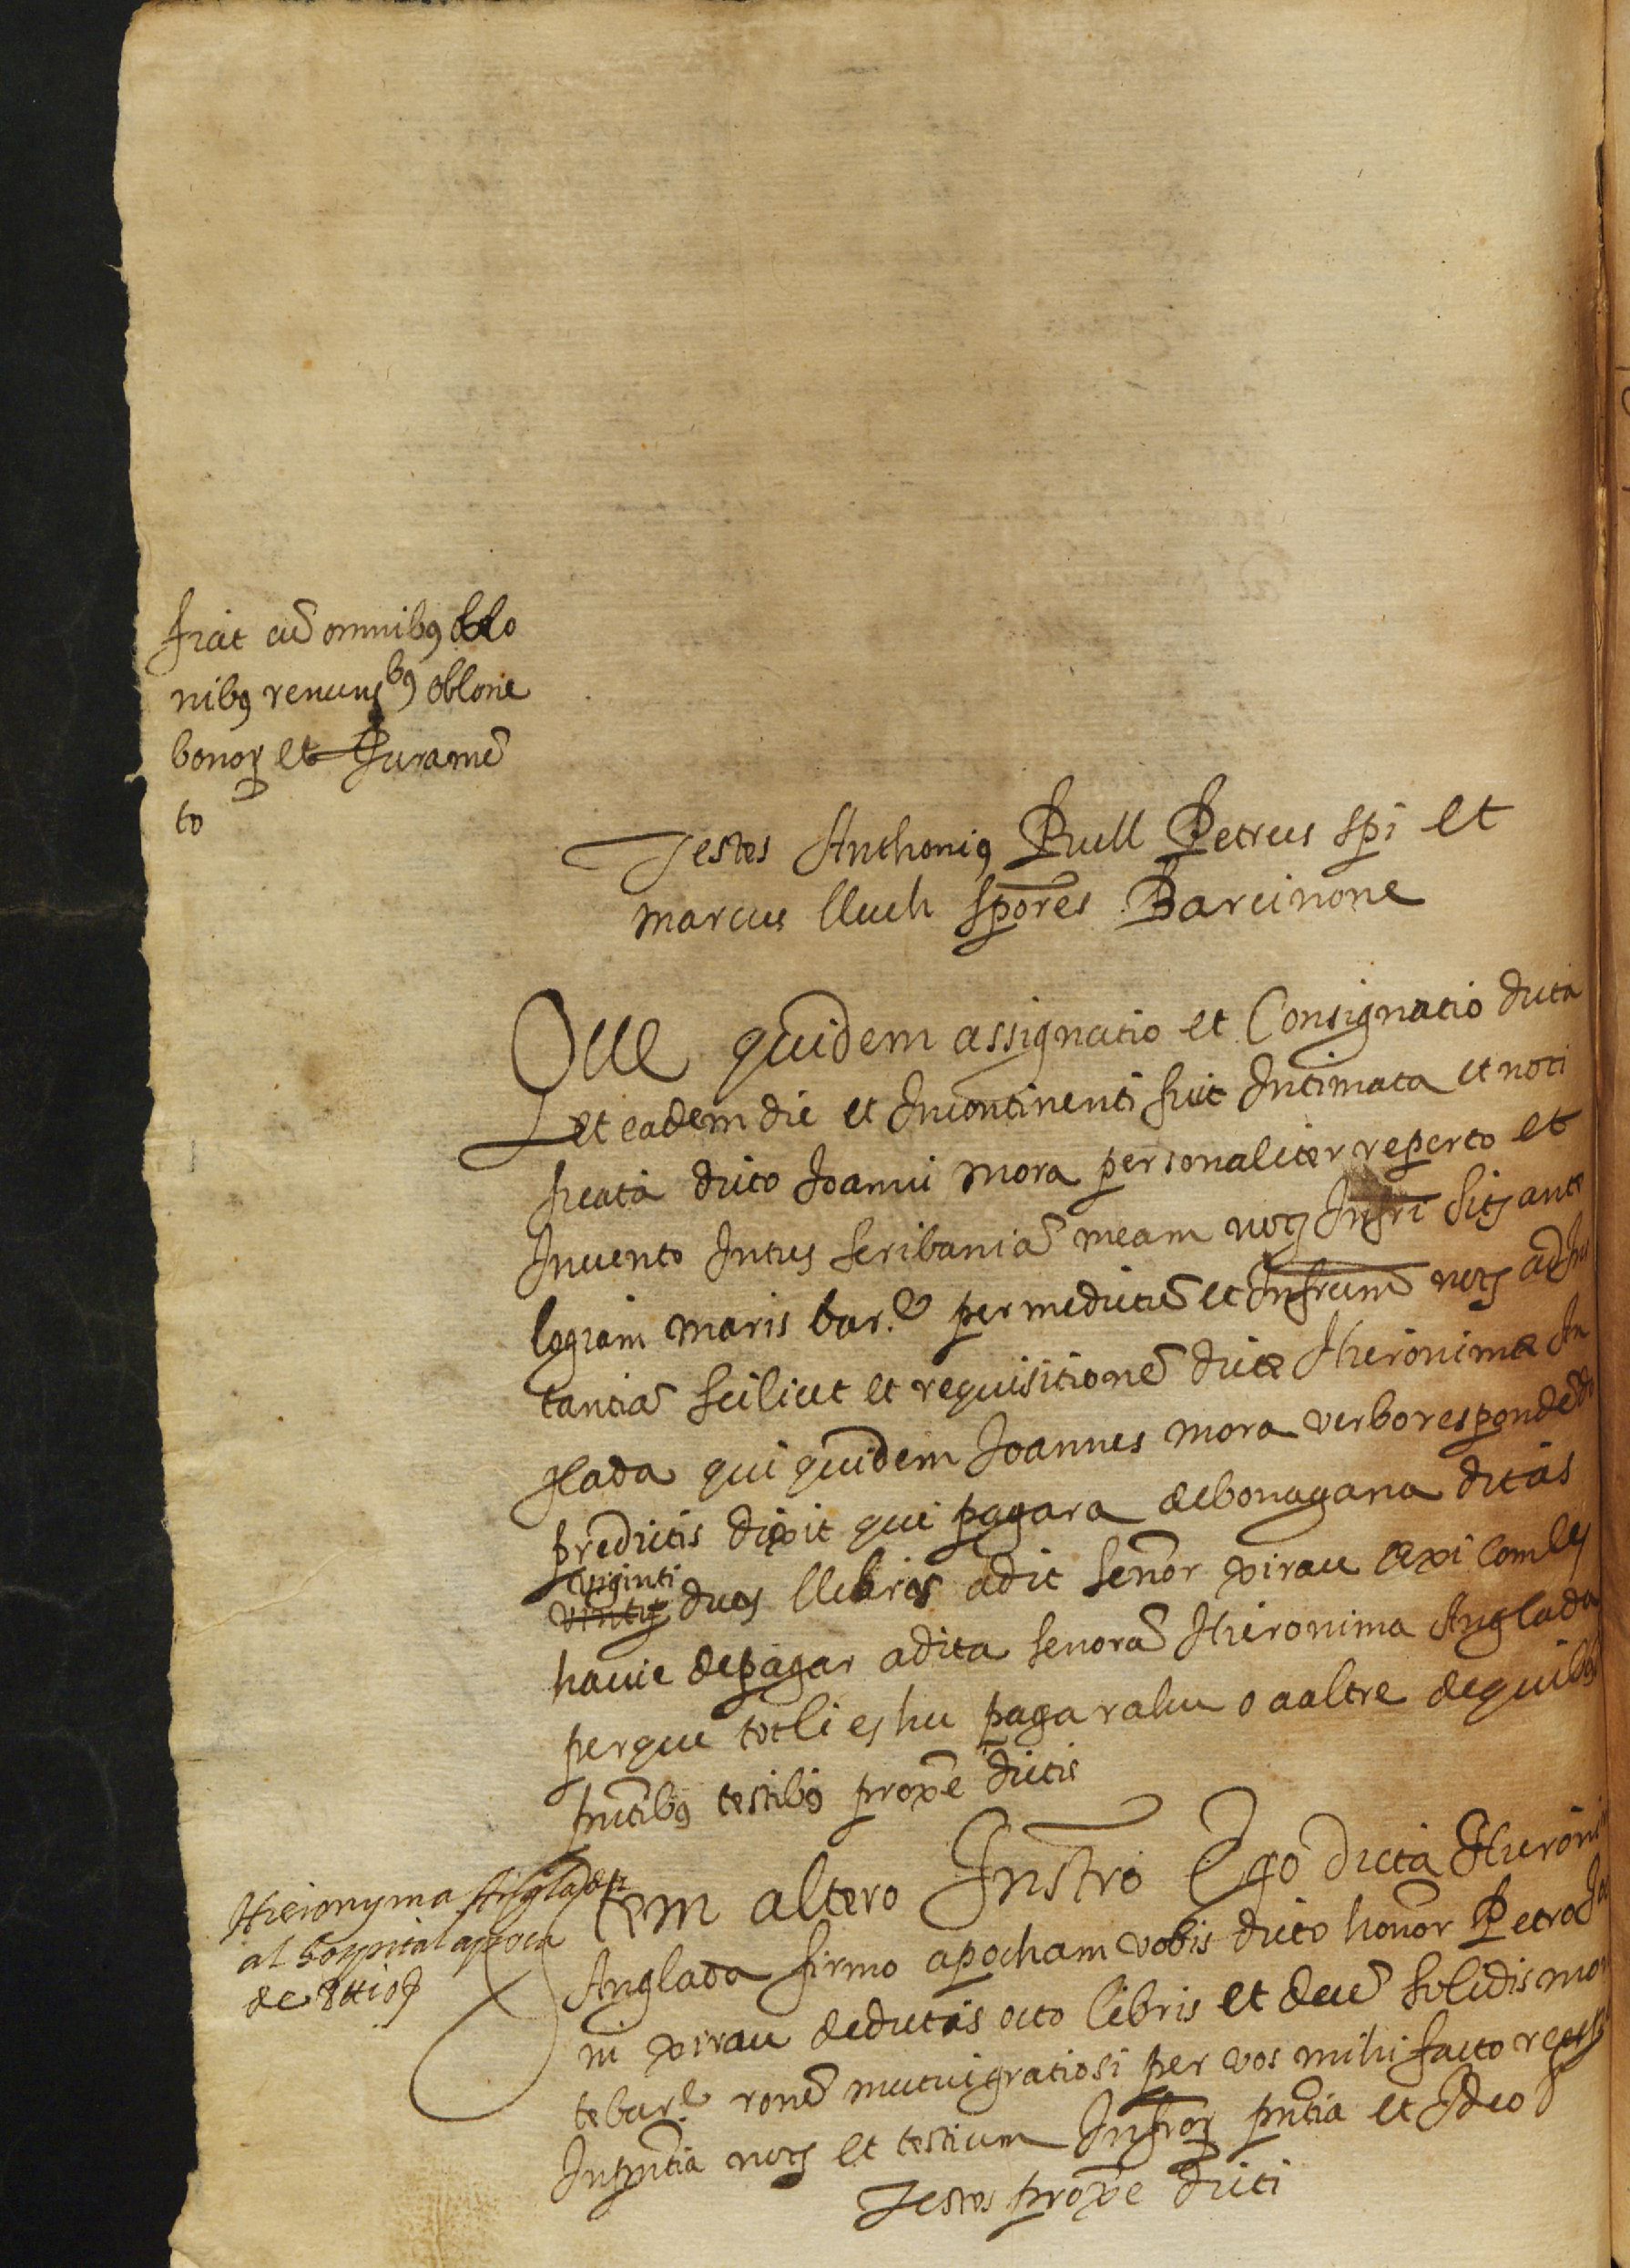 fiat cū omnibꝯ oblo
nibꝯ renuns bꝯ oblone
bonoꝝ et Juramē
to
Testes Anthoniꝯ Rull Petrus spi et
marcus lluch spōres Barcinone
Que quidem assignatio et Consignatio dicta
et eadem die et Incontinenti fuit Intimata et noti
ficata dicto Joanni mora personaliter reperto et
Inuento Intus scribaniā meam notͥ Infri sitͣ ante
logiam maris bar.e per me dictū et Infrum notͥ ad Ins
tantiā scilicet et requisitionē dicte Hieronime An
glada qui quidem Joannes mora verbo respondēdo
predictis dixit que pagara de bona gana ditas
viginti
dues lliures a dit señor xirau axi com les
hauie de pagar a dita senorā Hieronima Anglada
perque tot li es hu pagar a hu o a altre de quibꝯ
pn̄tibꝯ testibꝯ proxē dictis
Hieronyma Anglada
al hospital apoca
de 8 ₶ 10 ẞ
Item altero Instrō Ego dicta Hieroni
Anglada firmo apocham vobis dicto honor Petro Ja
ni xirau de dictis octo libris et decē solidis mo
te bar.e ronē mutui gratiosi per vos mihi facto
In pn̄tia notͥ et testium Infroꝝ pn̄tia et Ideo
Testes proxē dicti